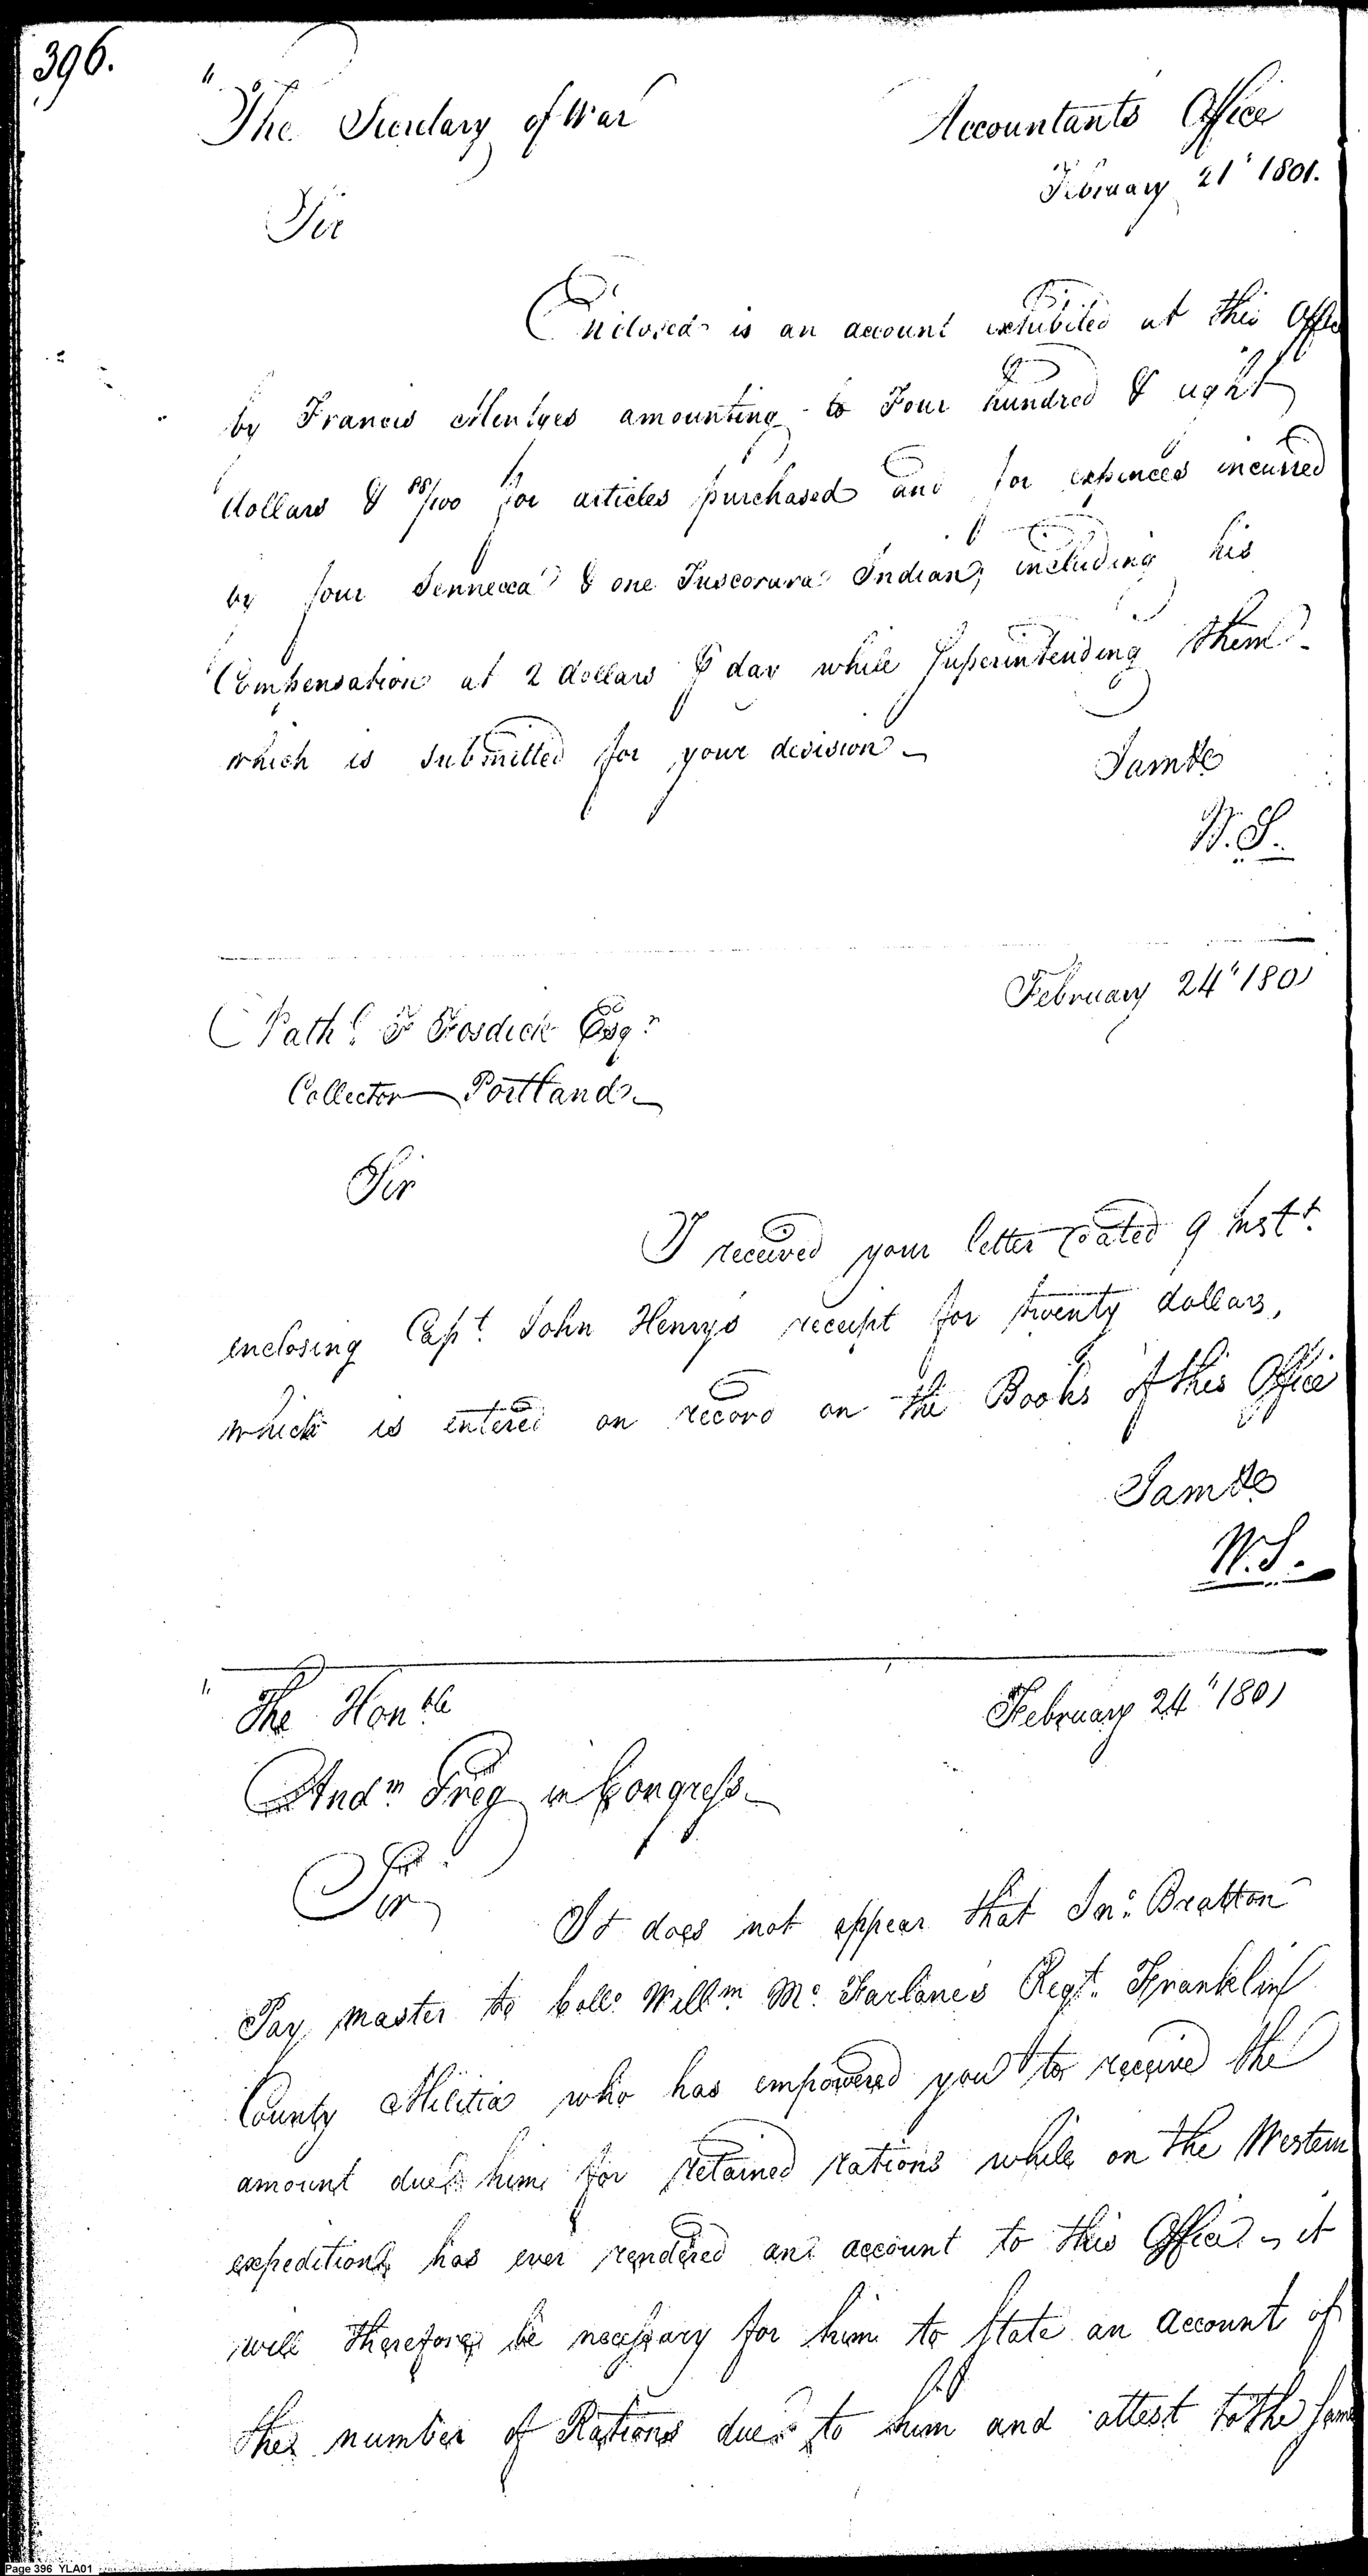 396.
The Secretary of War
Accountants Office
February 21" 1801.
Sir
Enclosed is an account exhibited at this Office
by Francis Mentges amounting to Four hundred & eight
dollars & 88/100 for articles purchased and for expences incurred
by four Sennecca & one Tuscorura Indian, including his
Compensation at 2 dollars ⅌ day while Superintending them
which is submitted for your decision
I am &c
W. S.
February 24" 1801
Nathl. F Fosdick Esqr
Collector Portland
Sir
I received your letter dated 9 Instt.
enclosing Capt. John Henrys receipt for twenty dollars,
which is entered on record on the Books of this Office
I am &c
W. S.
The Honble
February 24" 1801
Andw Greg in Congress
Sir
It does not appear that Jno. Bratton
Pay master to Collo. Willm. Mc. Farlane's Regt. Franklin
County Militia who has empowered you to receive the
amount due him for retained rations while on the Western
expedition has ever rendered an account to this Office it
will therefore be necessary for him to State an account of
the number of Rations due to him and attest to the same
Page 396 YLA01